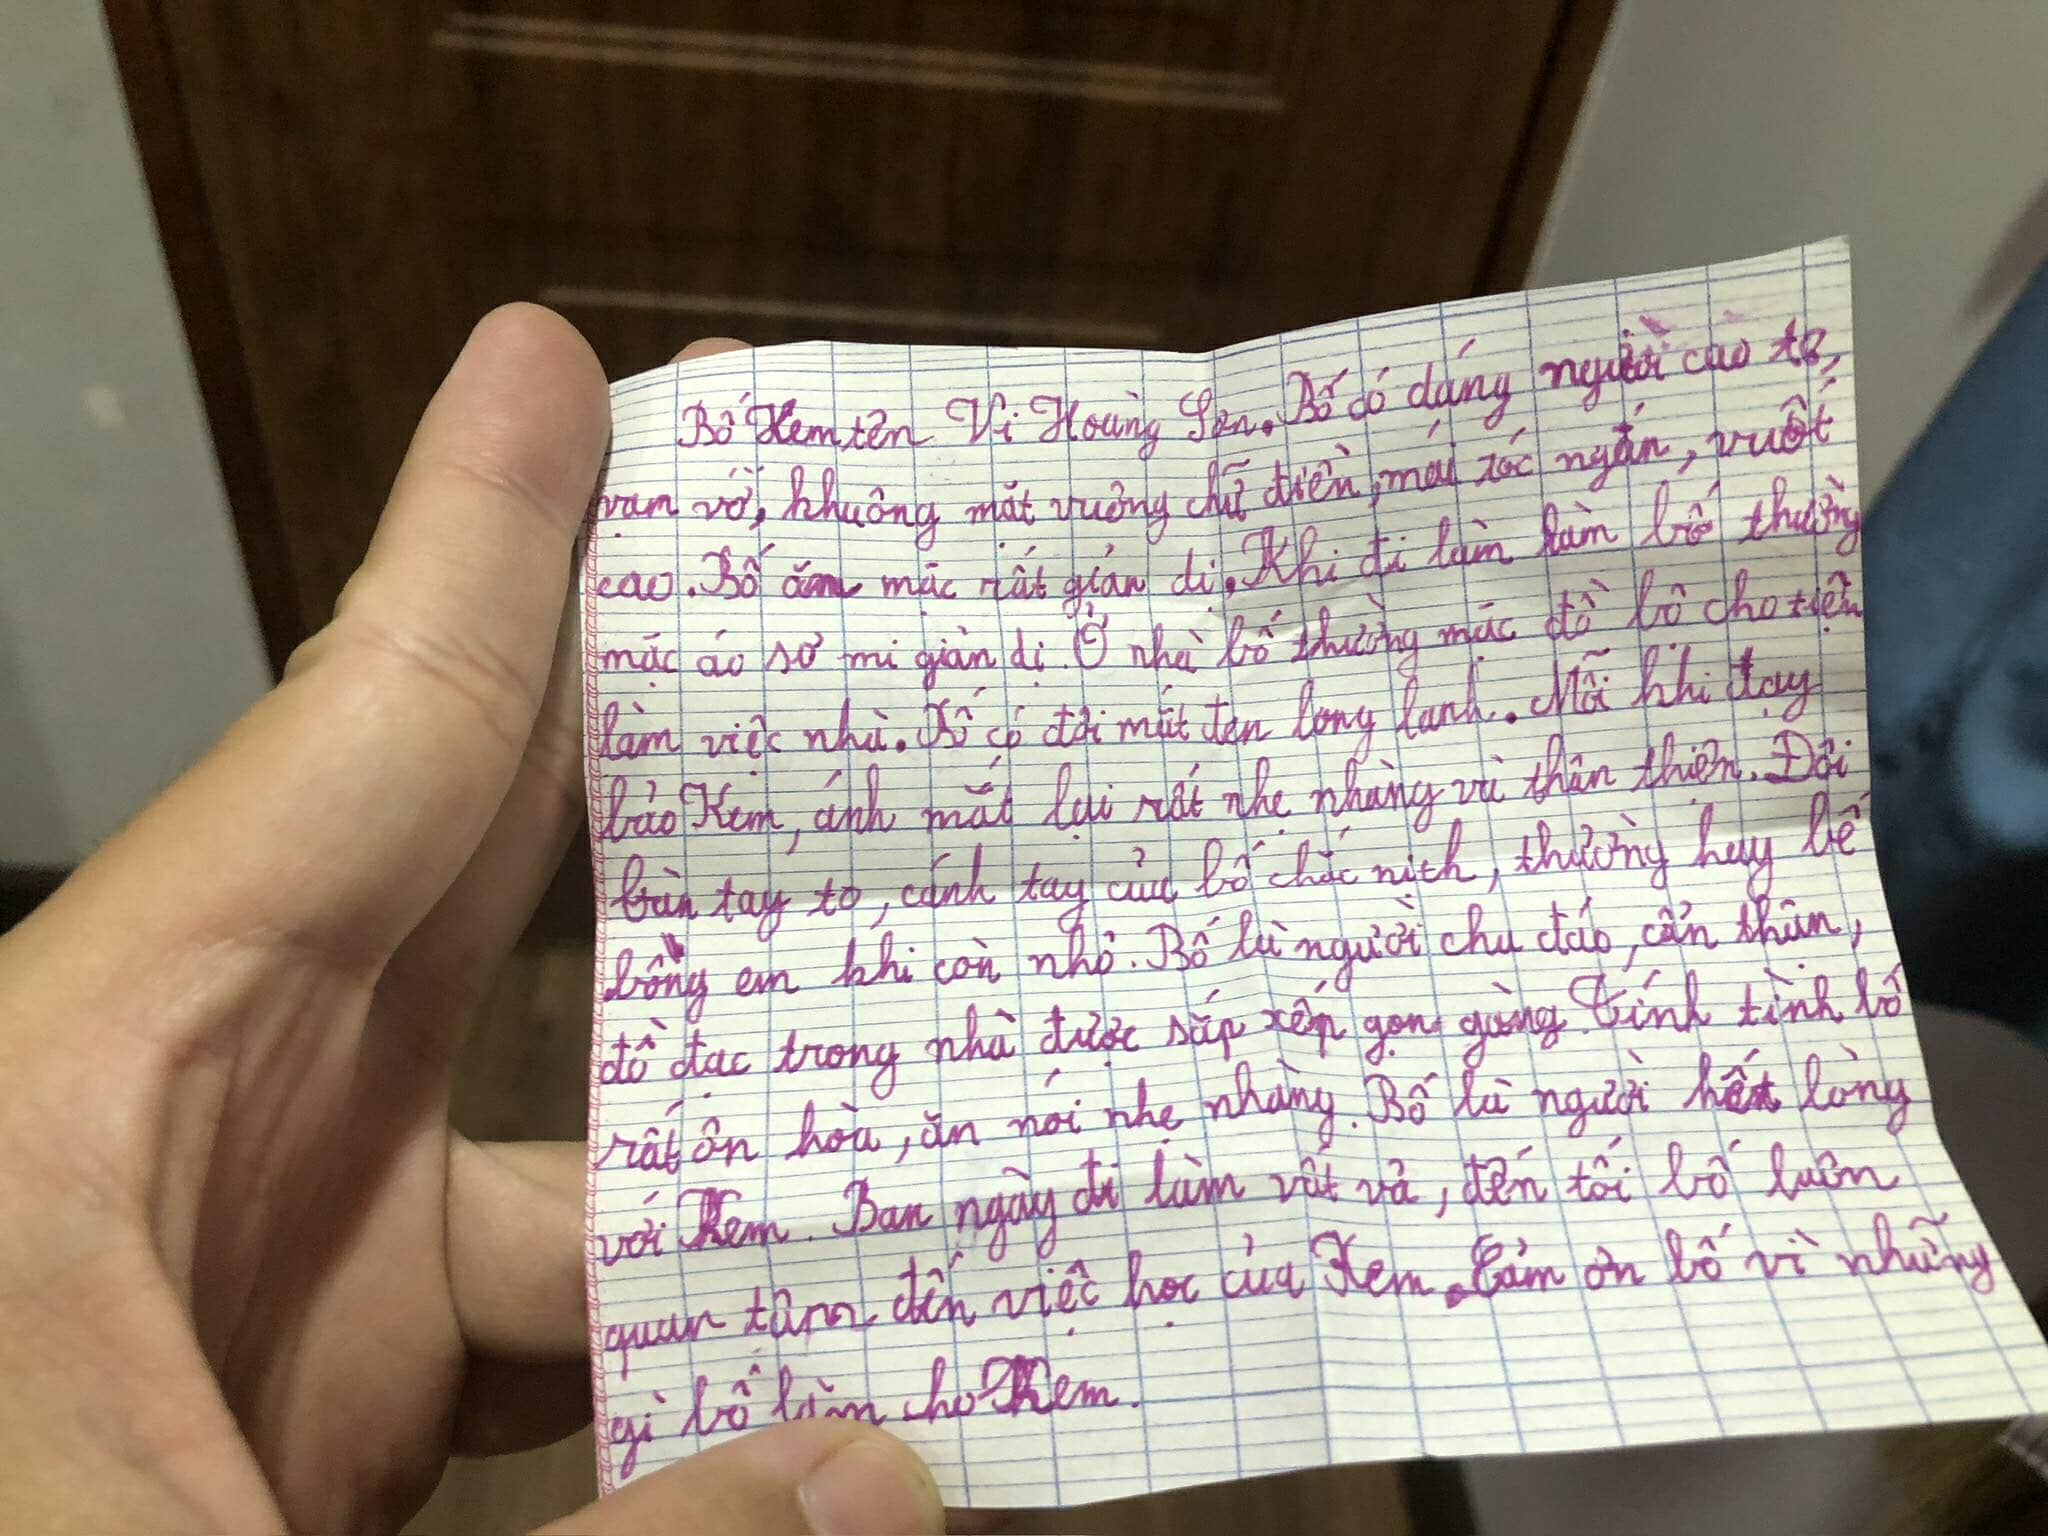 Bố Kem tên Vi Hoàng Sơn. Bố có dáng người cao to,
vạm vỡ, khuông mặt vuông chữ điền, mái tóc ngắn, vuốt
cao. Bố ăn mặc rất giản dị. Khi đi làm làm bố thường
mặc áo sơ mi giản dị. Ở nhà bố thường mặc đồ bộ cho tiện
làm việc nhà. Bố có đôi mắt đen long lanh. Mỗi khi dạy
bảo Kem, ánh mắt lại rất nhẹ nhàng và thân thiện. Đôi
bàn tay to, cánh tay của bố chắc nịch, thường hay bế
bồng em khi còn nhỏ. Bố là người chu đáo, cẩn thận,
đồ đạc trong nhà được sắp xếp gọn gàng. Tính tình bố
rất ôn hòa, ăn nói nhẹ nhàng. Bố là người hết lòng
với Kem. Ban ngày đi làm vất vả, đến tối bố luôn
quan tâm đến việc học của Kem. Cảm ơn bố vì những
gì bố làm cho Kem.